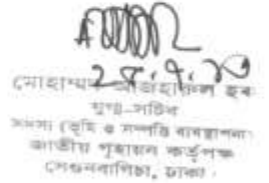 ২৪.৭.১৩
মোহাম্মদ আজহারুল হক
যুগ্ম-সচিব
সদস্য (ভূমি ও সম্পত্তি ব্যবস্থাপনা)
জাতীয় গৃহায়ন কর্তৃপক্ষ
সেগুনবাগিচা, ঢাকা।